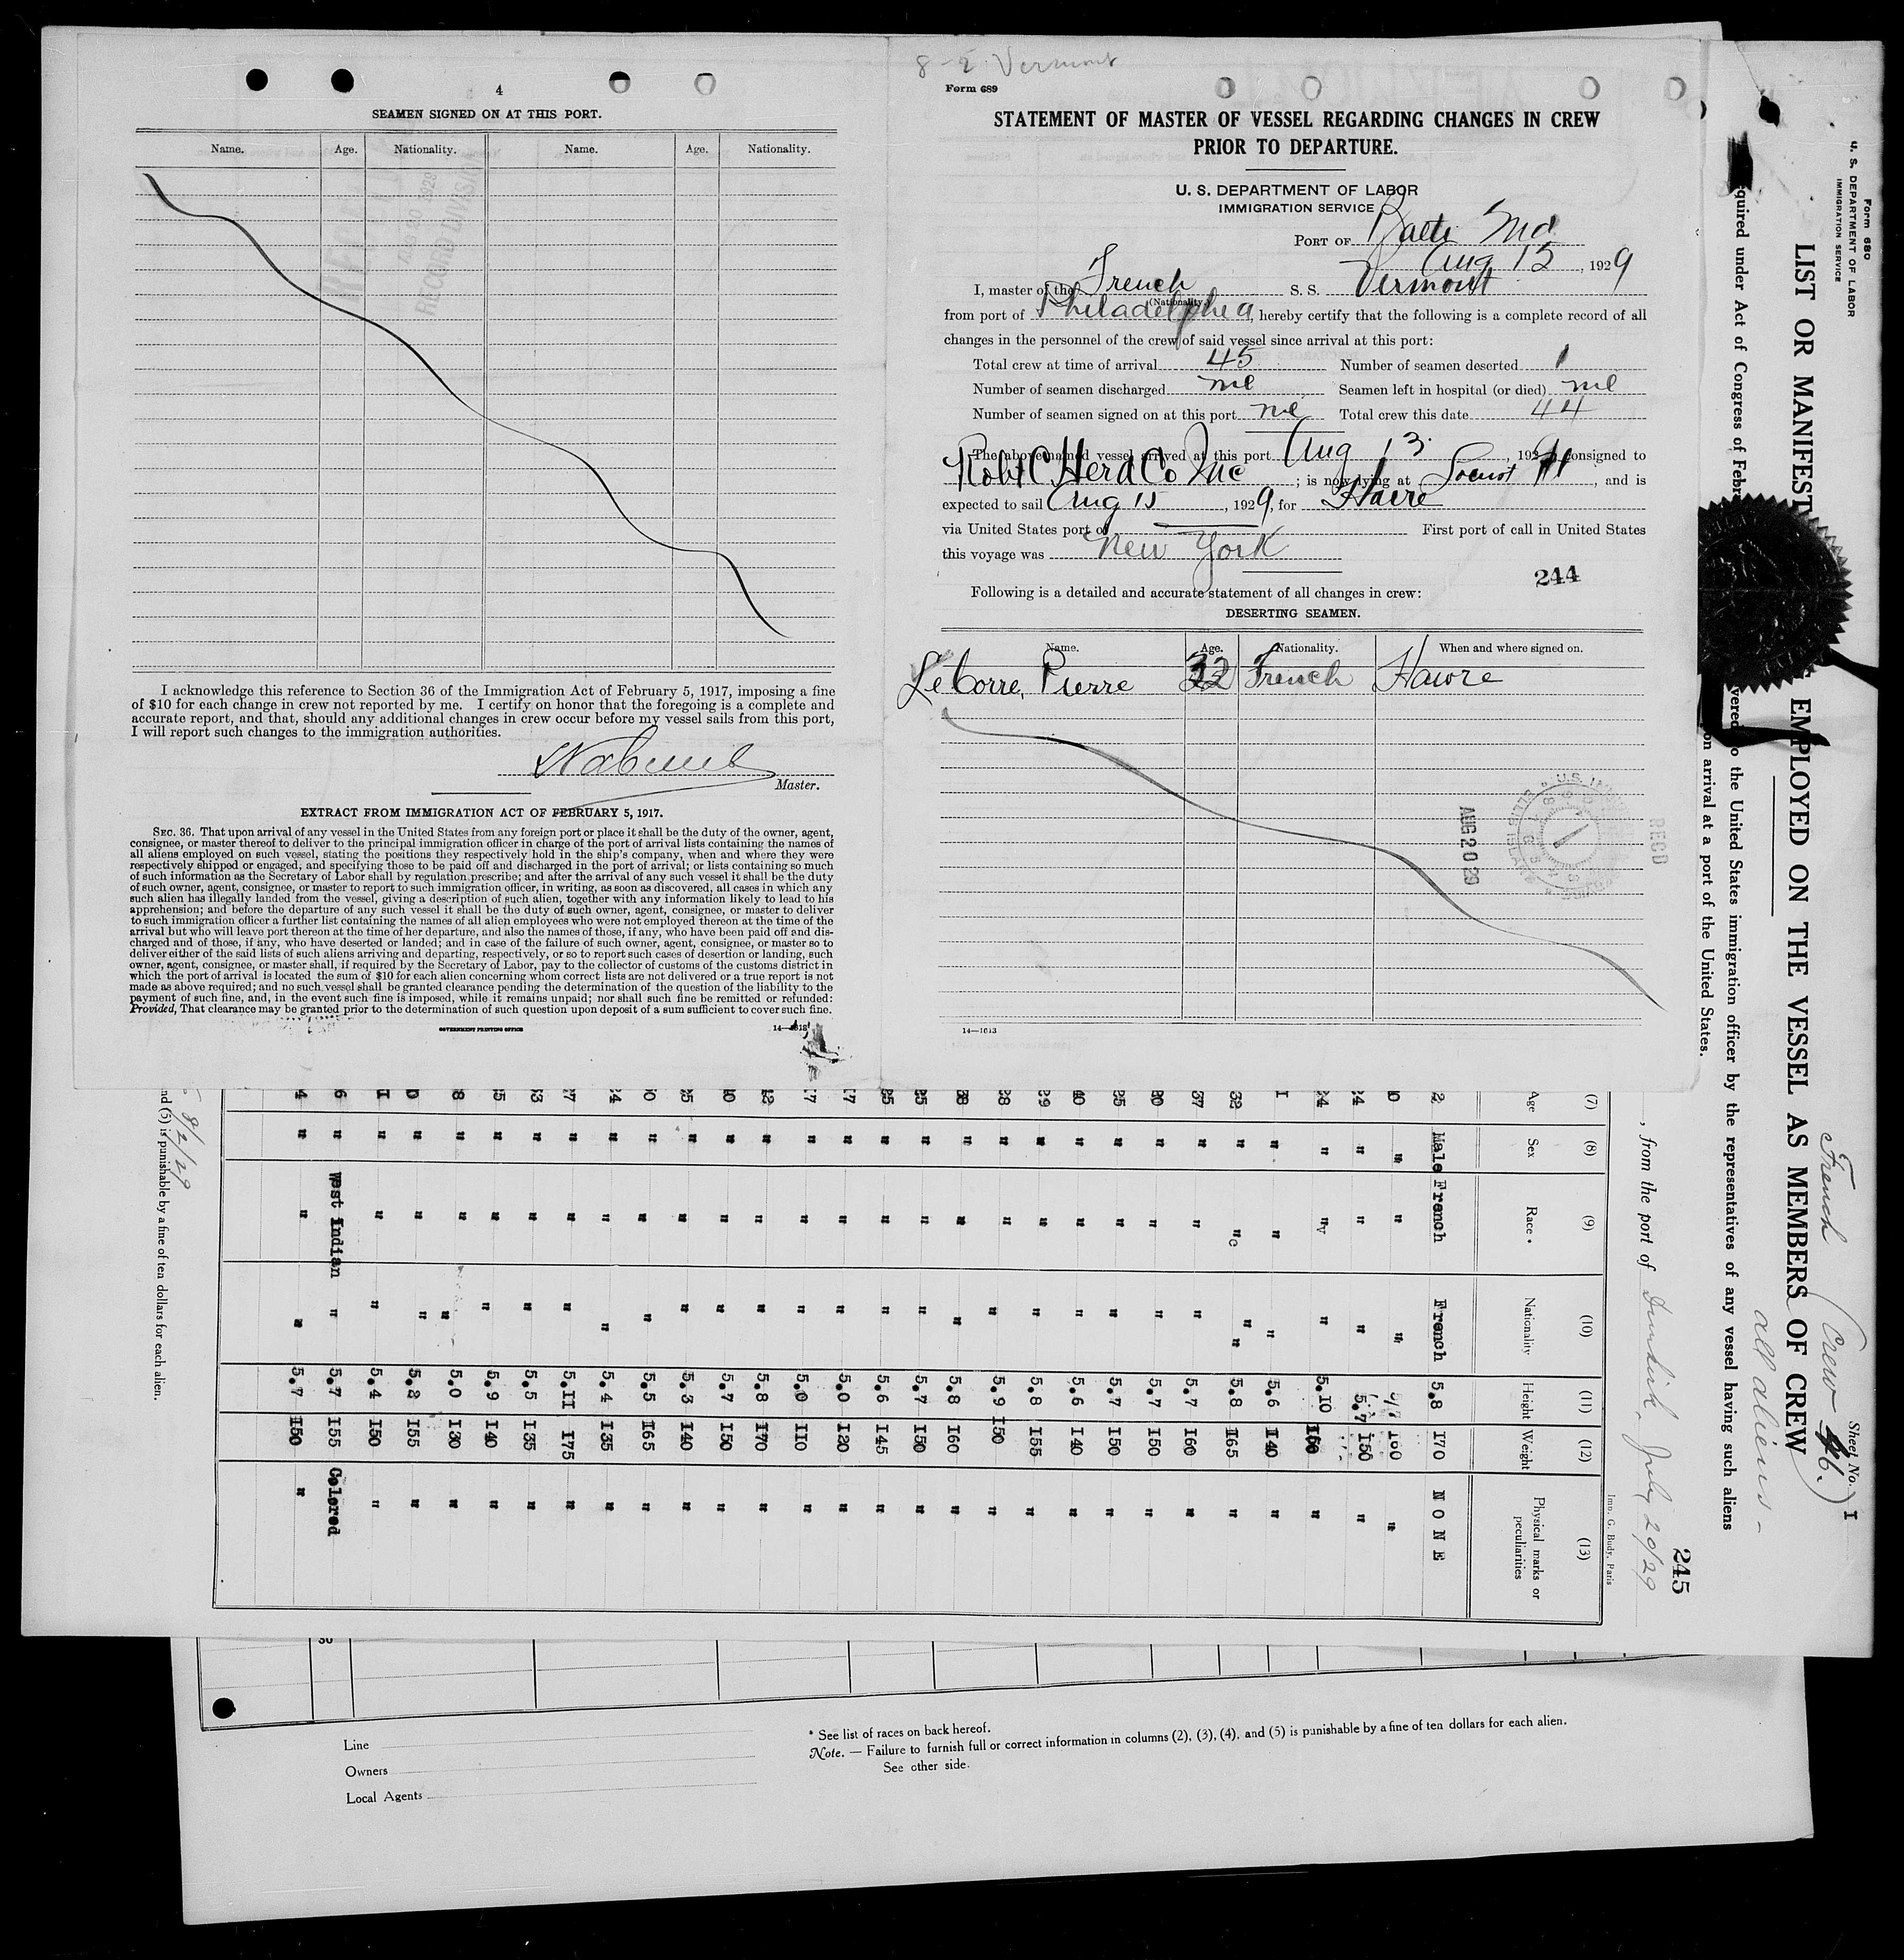 4
SEAMEN SIGNED ON AT THIS PORT.
Name. Age. Nationality. Name. Age. Nationality.
RECORD DIVISION
I acknowledge this reference to Section 36 of the Immigration Act of February 5, 1917, imposing a fine
of $10 for each change in crew not reported by me. I certify on honor that the foregoing is a complete and
accurate report, and that, should any additional changes in crew occur before my vessel sails from this port,
I will report such changes to the immigration authorities.
Master.
EXTRACT FROM IMMIGRATION ACT OF FEBRUARY 5, 1917.
SEC. 36. That upon arrival of any vessel in the United States from any foreign port or place it shall be the duty of the owner, agent,
consignee, or master thereof to deliver to the principal immigration officer in charge of the port of arrival lists containing the names of
all aliens employed on such vessel, stating the positions they respectively hold in the ship's company, when and where they were
respectively shipped or engaged, and specifying those to be paid off and discharged in the port of arrival; or lists containing so much
of such information as the Secretary of Labor shall by regulation prescribe; and after the arrival of any such vessel it shall be the duty
of such owner, agent, consignee, or master to report to such immigration officer, in writing, as soon as discovered, all cases in which any
such alien has illegally landed from the vessel, giving a description of such alien, together with any information likely to lead to his
apprehension; and before the departure of any such vessel it shall be the duty of such owner, agent, consignee, or master to deliver
to such immigration officer a further list containing the names of all alien employees who were not employed thereon at the time of the
arrival but who will leave port thereon at the time of her departure, and also the names of those, if any, who have been paid off and dis-
charged and of those, if any, who have deserted or landed; and in case of the failure of such owner, agent, consignee, or master so to
deliver either of the said lists of such aliens arriving and departing, respectively, or so to report such cases of desertion or landing, such
owner, agent, consignee, or master shall, if required by the Secretary of Labor, pay to the collector of customs of the customs district in
which the port of arrival is located the sum of $10 for each alien concerning whom correct lists are not delivered or a true report is not
made as above required; and no such vessel shall be granted clearance pending the determination of the question of the liability to the
payment of such fine, and, in the event such fine is imposed, while it remains unpaid; nor shall such fine be remitted or refunded:
Provided, That clearance may be granted prior to the determination of such question upon deposit of a sum sufficient to cover such fine.
GOVERNMENT PRINTING OFFICE
8-2 Vermont
Form 689
STATEMENT OF MASTER OF VESSEL REGARDING CHANGES IN CREW
PRIOR TO DEPARTURE.
U. S. DEPARTMENT OF LABOR
IMMIGRATION SERVICE
PORT OF Balto Md
Aug 15, 1929
I, master of the French S. S. Vermont
(Nationality)
from port of Philadelphia, hereby certify that the following is a complete record of all
changes in the personnel of the crew of said vessel since arrival at this port:
Total crew at time of arrival 45 Number of seamen deserted 1
Number of seamen discharged nil Seamen left in hospital (or died) nil
Number of seamen signed on at this port nil Total crew this date 44
The above-named vessel arrived at this port Aug 13, 1929, consigned to
Robt C Herd Co Inc; is now lying at Locust Pt, and is
expected to sail Aug 15, 1929, for Havre
via United States port of First port of call in United States
this voyage was New York
244
Following is a detailed and accurate statement of all changes in crew:
DESERTING SEAMEN.
Name. Age. Nationality. When and where signed on.
Le Corre, Pierre 32 French Havre
AUG 20 29
RECD
14—1613
Form 680
U. S. DEPARTMENT OF LABOR
IMMIGRATION SERVICE
Sheet No. I
LIST OR MANIFEST EMPLOYED ON THE VESSEL AS MEMBERS OF CREW
French (Crew 46.)
all aliens -
quired under Act of Congress of Febr vered to the United States immigration officer by the representatives of any vessel having such aliens
on arrival at a port of the United States.
245
, from the port of Dunkirk, July 20/29
Imp. G. Budy, Paris
(7) (8) (9) (10) (11) (12) (13)
Age Sex Race * Nationality Height Weight Physical marks or peculiarities
2 Male French French 5.8 170 NONE
0 " " " 5/7 160 "
24 " " " 5.7 150 "
24 " " " 5.10 160 "
I " " " 5.6 I40 "
32 " " " 5.8 I65 "
37 " " " 5.7 I60 "
30 " " " 5.7 I50 "
25 " " " 5.7 I50 "
40 " " " 5.6 I40 "
29 " " " 5.8 I55 "
28 " " " 5.9 I50 "
38 " " " 5.8 I60 "
25 " " " 5.7 I50 "
35 " " " 5.6 I45 "
I7 " " " 5.0 I20 "
I7 " " " 5.0 II0 "
" " " 5.8 I70 "
40 " " " 5.7 I50 "
25 " " " 5.3 I40 "
" " " 5.5 I65 "
24 " " " 5.4 I35 "
27 " " " 5.II I75 "
" " " 5.5 I35 "
" " " 5.9 I40 "
" " " 5.0 I30 "
" " " 5.2 I55 "
" " " 5.4 I50 "
6 " West Indian " 5.7 I55 Colored
4 " " " 5.7 I50 "
8/2/29
nd (5) is punishable by a fine of ten dollars for each alien.
Line
Owners
Local Agents
* See list of races on back hereof.
Note. — Failure to furnish full or correct information in columns (2), (3), (4), and (5) is punishable by a fine of ten dollars for each alien.
See other side.